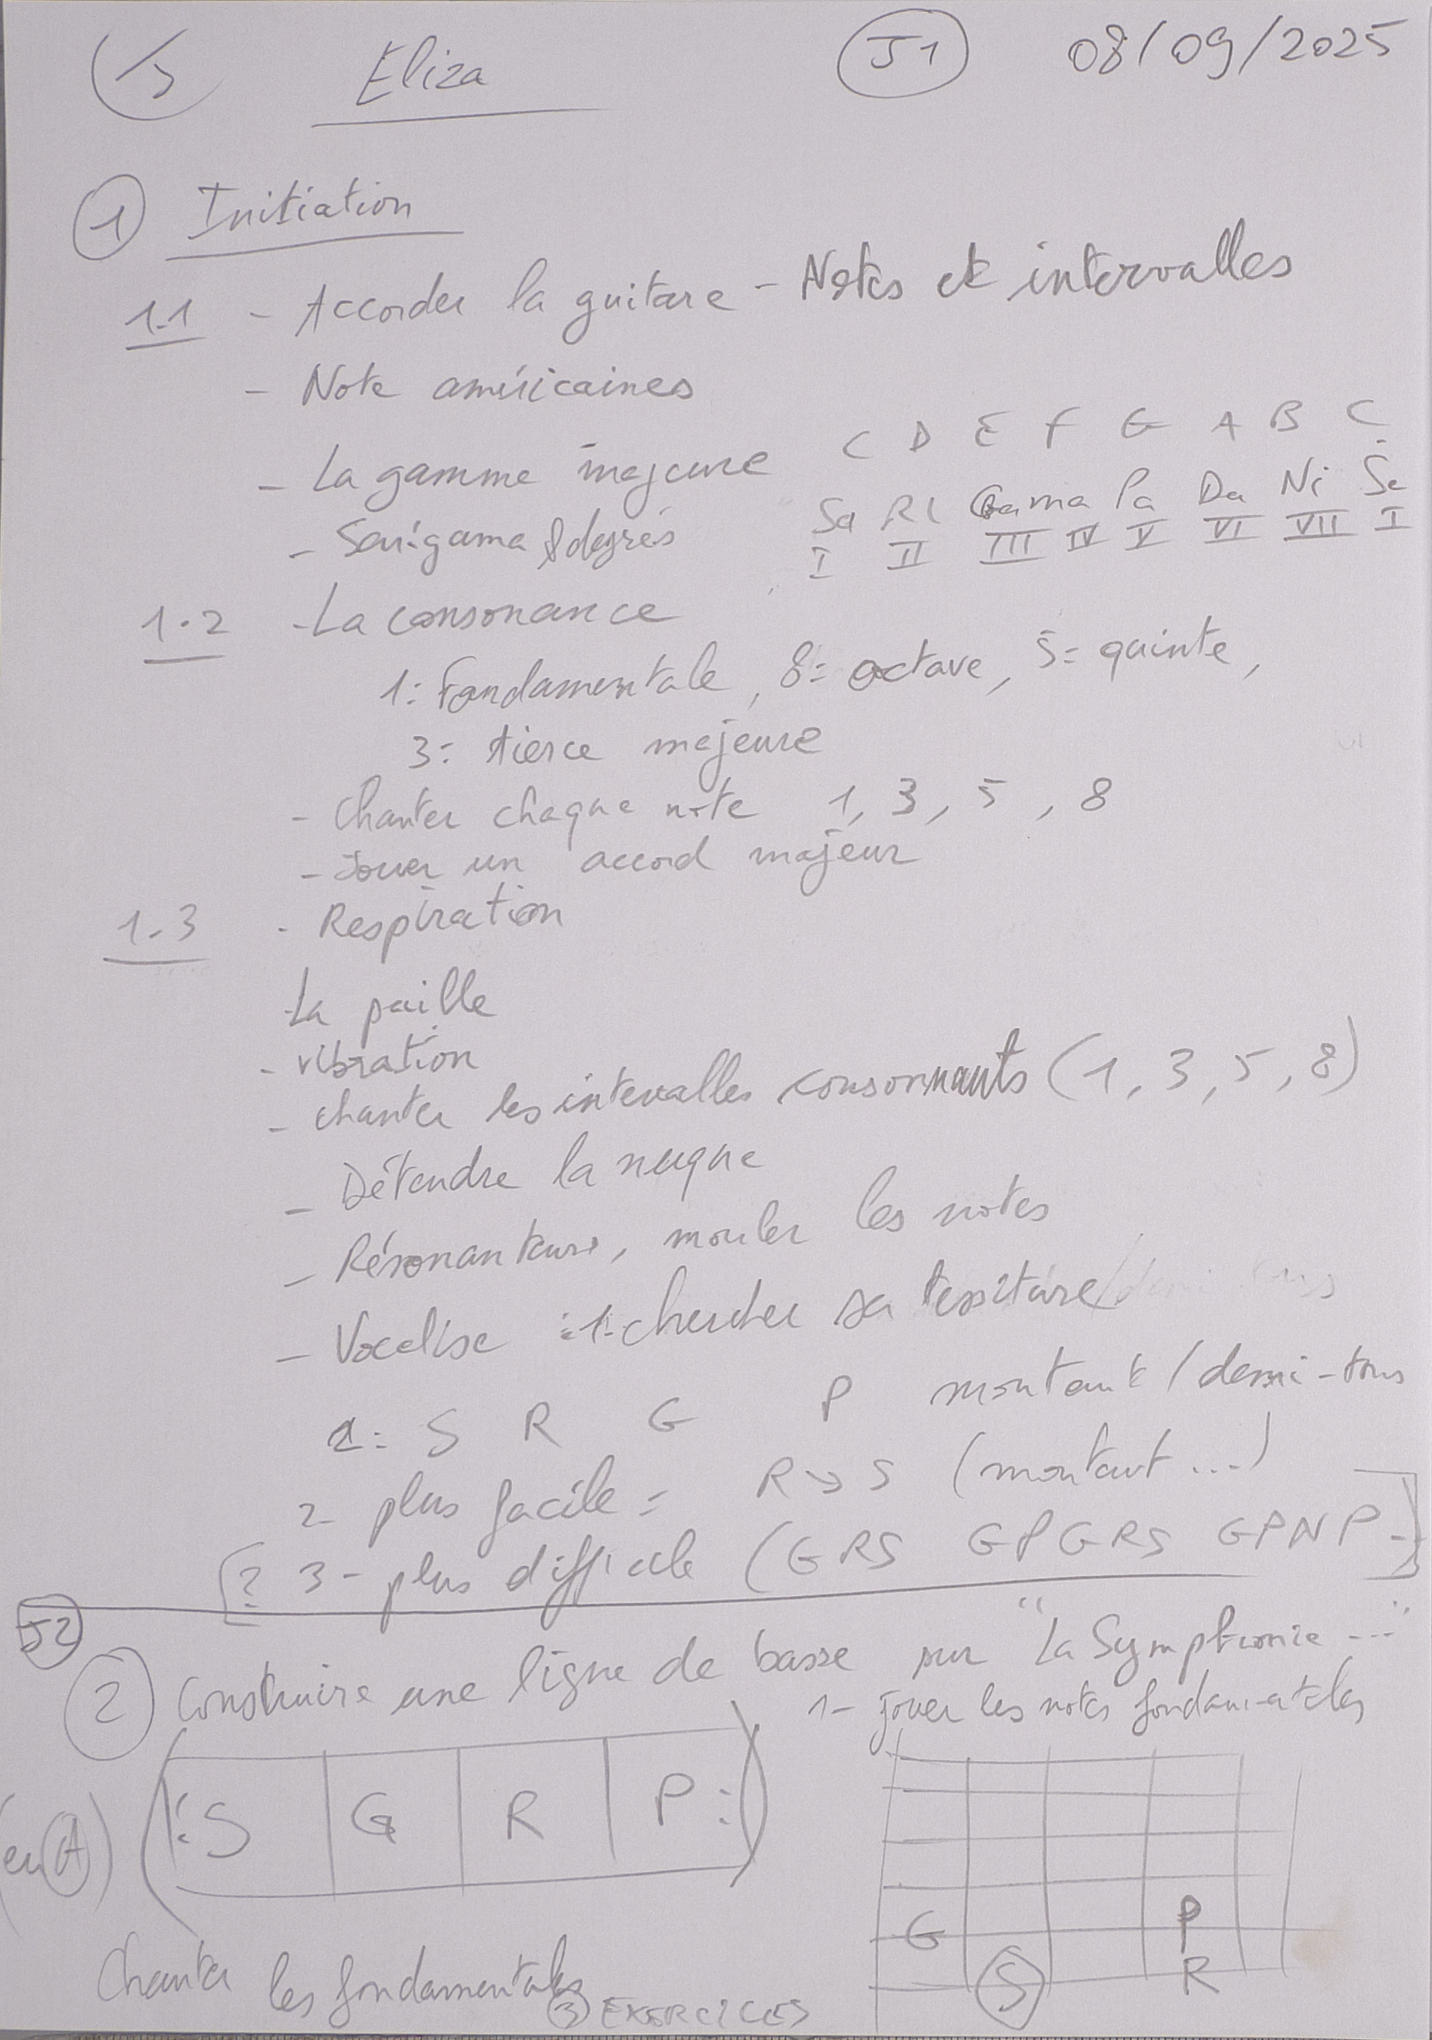 5 Eliza J1 08/09/2025
1 Initiation
1.1 - Accorder la guitare - Notes et intervalles
- Note américaines
- La gamme majeure C D E F G A B C
- Sarigama & degrés Sa Ri Ga ma Pa Da Ni Sa
I II III IV V VI VII I
1.2 - La consonance
1: Fondamentale, 8= octave, 5= quinte,
3: tierce majeure
- Chanter chaque note 1, 3, 5, 8
- Jouer un accord majeur
1.3 - Respiration
- La paille
- vibration
- chanter les intervalles consonnants (1, 3, 5, 8)
- Détendre la nuque
- Résonanteurs, mouler les notes
- Vocalise : 1- chercher sa tessiture
2: S R G P montant / demi-tons
2- plus facile = R → S (montant ...)
[? 3- plus difficile (GRS GPGRS GPNP-]
J2
2 Construire une ligne de basse sur "La Symphonie ..."
1- jouer les notes fondamentales
(en A) (: S | G | R | P :)
G P
S R
Chanter les fondamentales
3 EXERCICES